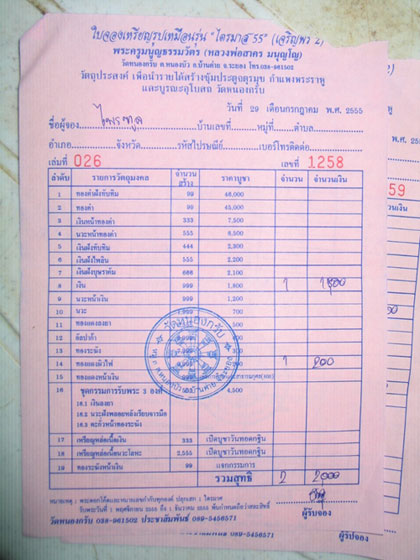 ใบจองเหรียญรูปเหมือนรุ่น "ไตรมาส 55" (เจริญพร 2)
พระครูมนูญธรรมวัตร (หลวงพ่อสาคร มนุญฺโญ)
วัดหนองกรับ ต.หนองบัว อ.บ้านค่าย จ.ระยอง โทร.038-961502
วัตถุประสงค์ เพื่อนำรายได้สร้างซุ้มประตูจตุรมุข กำแพงพระราหู
และบูรณะอุโบสถ วัดหนองกรับ
วันที่ 29 เดือนกรกฎาคม พ.ศ. 2555
ชื่อผู้จอง บ้านเลขที่ หมู่ที่ ตำบล
อำเภอ จังหวัด รหัสไปรษณีย์ เบอร์โทรติดต่อ
เล่มที่ 026 เลขที่ 1258
ลำดับ รายการวัตถุมงคล จำนวนสร้าง ราคาบูชา จำนวน จำนวนเงิน
1 ทองคำฝังทับทิม 99 48,000
2 ทองคำ 99 45,000
3 เงินหน้าทองคำ 333 7,500
4 นวะหน้าทองคำ 555 6,500
5 เงินฝังทับทิม 444 2,300
6 เงินฝังไพลิน 555 2,200
7 เงินฝังบุษราคัม 666 2,100
8 เงิน 999 1,800 1 1,800
9 นวะหน้าเงิน 999 1,200
10 นวะ 999 700
11 ทองแดงลงยา 500
12 อัลปาก้า
13 ทองระฆัง
14 ทองแดงผิวไฟ 1 200
15 ทองแดงหน้าเงิน
16 ชุดกรรมการรับพระ 3 องค์ 4,500
16.1 เงินลงยา
16.2 นวะฝังพลอยหลังเรียบจารมือ
16.3 ตะกั่วหน้าทองระฆัง
17 เหรียญหล่อเนื้อเงิน 333 เปิดบูชาวันทอดกฐิน
18 เหรียญหล่อเนื้อนวะโลหะ 2,555 เปิดบูชาวันทอดกฐิน
19 ทองระฆังหน้าเงิน 99 แจกกรรมการ
รวมสุทธิ 2 2,000
ผู้รับจอง
วัดหนองกรับ 038-961502 ประชาสัมพันธ์ 089-5456571
วัดหนองกรับ
59
ผู้รับจอง
089-5456571